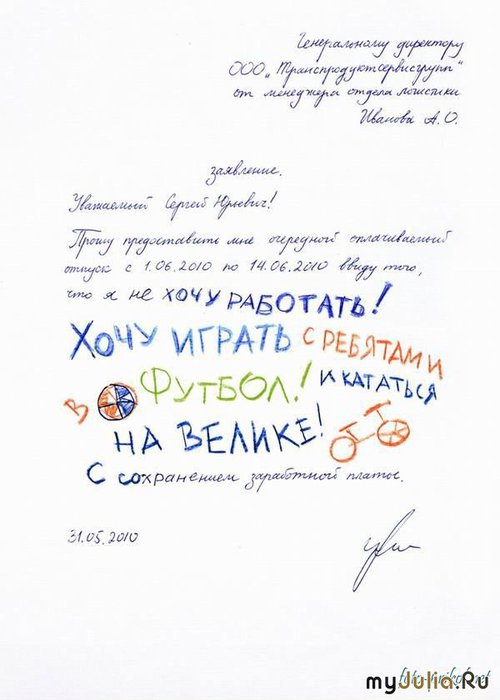 Генеральному директору
ООО „Транспродуктсервисгрупп“
от менеджера отдела логистики
Иванова А.О.
заявление.
Уважаемый Сергей Юрьевич!
Прошу предоставить мне очередной оплачиваемый
отпуск с 1.06.2010 по 14.06.2010 ввиду того,
что я не ХОЧУ РАБОТАТЬ!
ХОЧУ ИГРАТЬ С РЕБЯТАМИ
В ФУТБОЛ! И КАТАТЬСЯ
НА ВЕЛИКЕ!
С сохранением заработной платы.
31.05.2010
myJulia.Ru